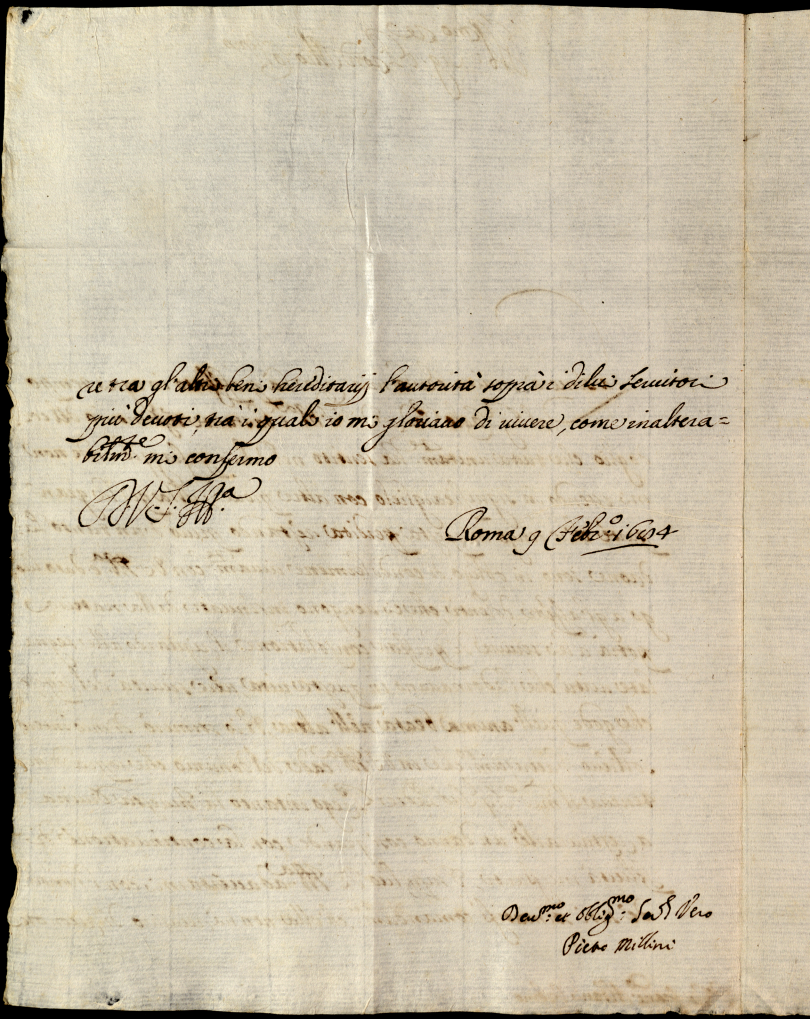 re tra gl'altri beni hereditarij l'autorità soprà i di lui Seruitori
più deuoti, trà i quali io mi glorierò di viuere, come inaltera=
bilm.te mi confermo
D. V. S. Ill.ma
Roma 9 Febr.o 1684
Deu.mo et oblig.mo Ser.e Vero
Pietro Millini